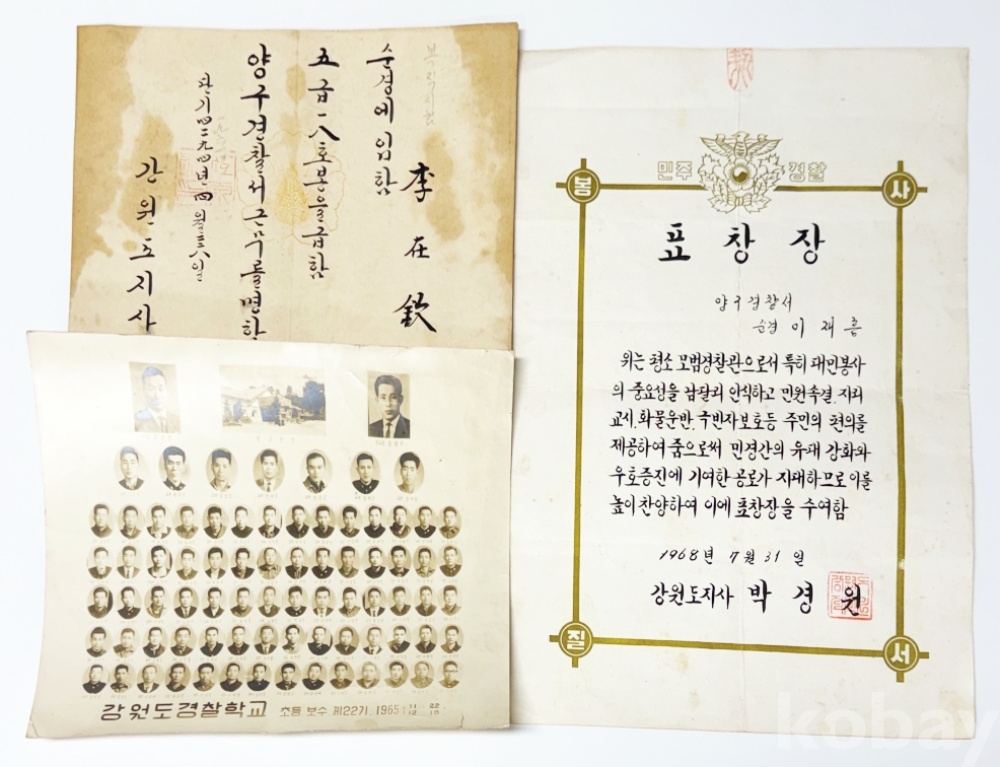 李在欽
순경에 임함
五급一八호봉을 급함
양구경찰서 근무를 명함
단기四二九四년 四월
강원도지사
강원도경찰학교 초등.보수 제22기. 1965. 11 22
12 18
민주 경찰
봉 사
표창장
양구경찰서
순경 이재흠
위는 평소 모범경찰관으로서 특히 대민봉사
의 중요성을 남달리 인식하고 민원속결. 지리
교시. 화물운반. 극빈자보호등 주민의 편의를
제공하여 줌으로써 민경간의 유대 강화와
우호증진에 기여한 공로가 지대하므로 이를
높이 찬양하여 이에 표창장을 수여함
1968년 7월 31일
강원도지사 박경원
질 서
kobay